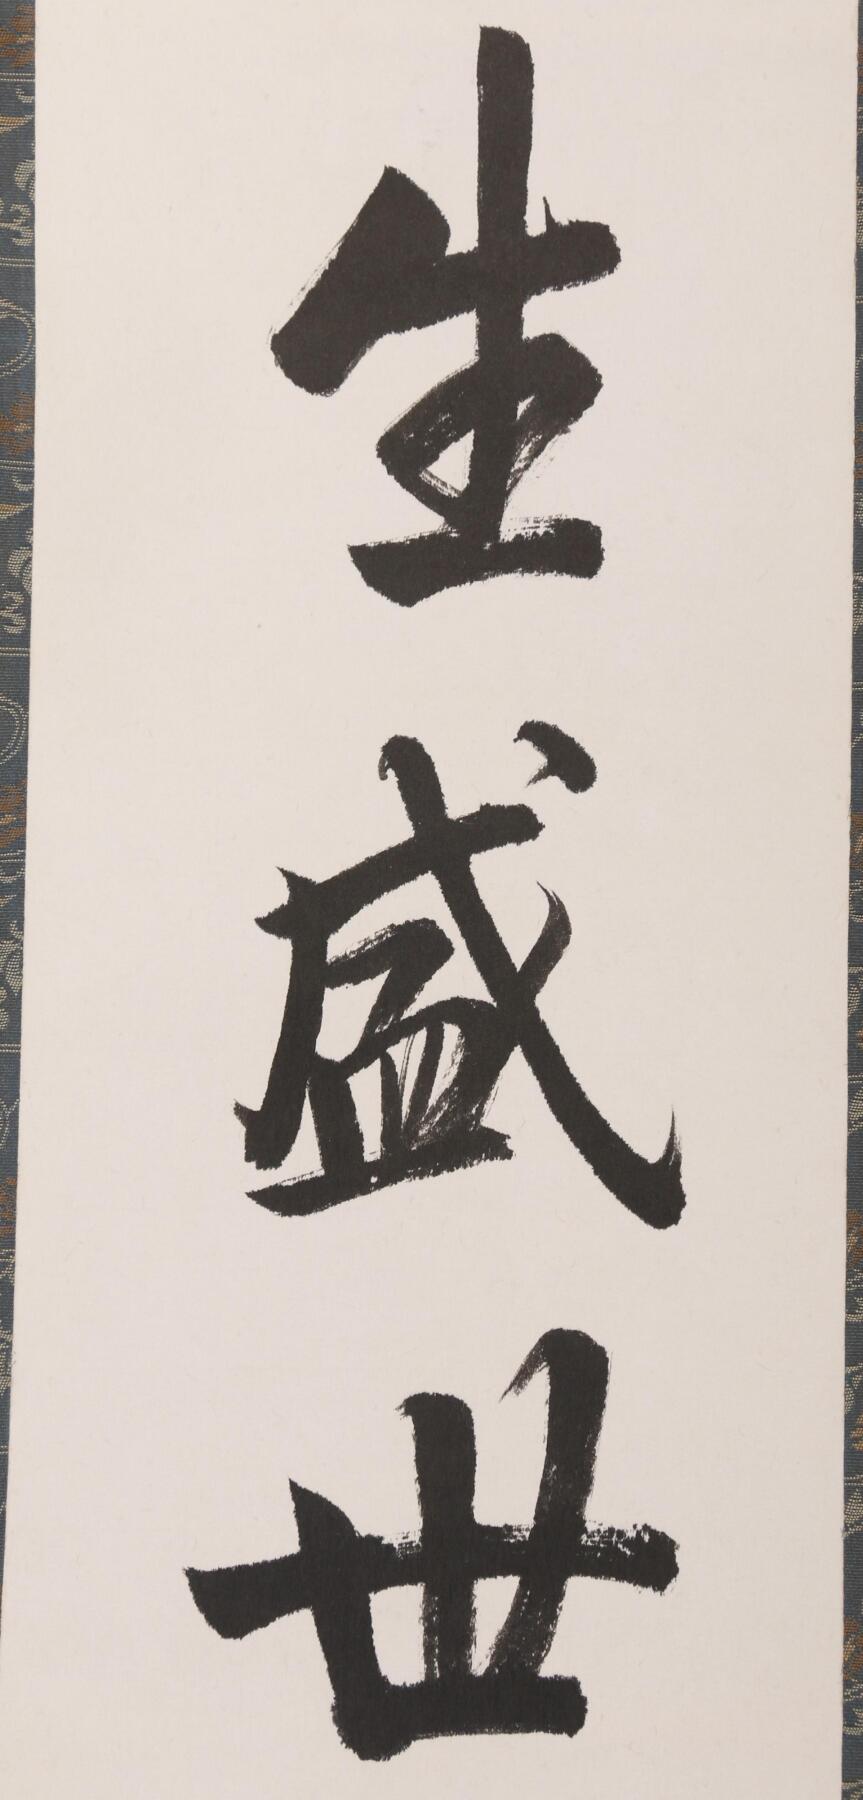 生盛世